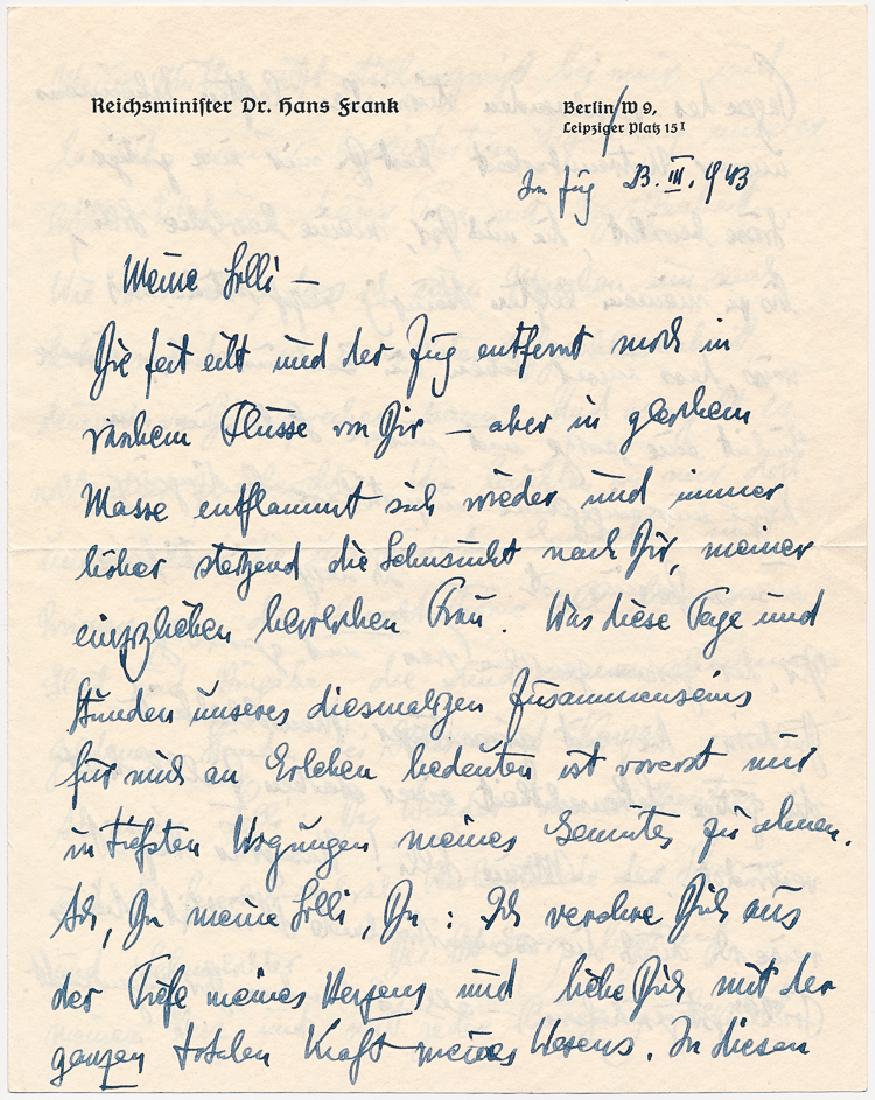 Reichsminister Dr. Hans Frank
Berlin W 9,
Leipziger Platz 15 I
Im Zug 23. III. 943
Meine Lilli —
Die Zeit eilt und der Zug entfernt mich in
raschem Flusse von Dir — aber in gleichem
Masse entflammt sich wieder und immer
höher steigend die Sehnsucht nach Dir, meiner
einzlieben herrlichen Frau. Was diese Tage und
Stunden unseres diesmaligen Zusammenseins
für mich an Erleben bedeuten ist vorerst nur
in tiefsten Regungen meines Gemütes zu ahnen.
Ach, Du meine Lilli, Du: Ich verehre Dich aus
der Tiefe meines Herzens und liebe Dich mit der
ganzen Kraft meines Wesens. In diesen